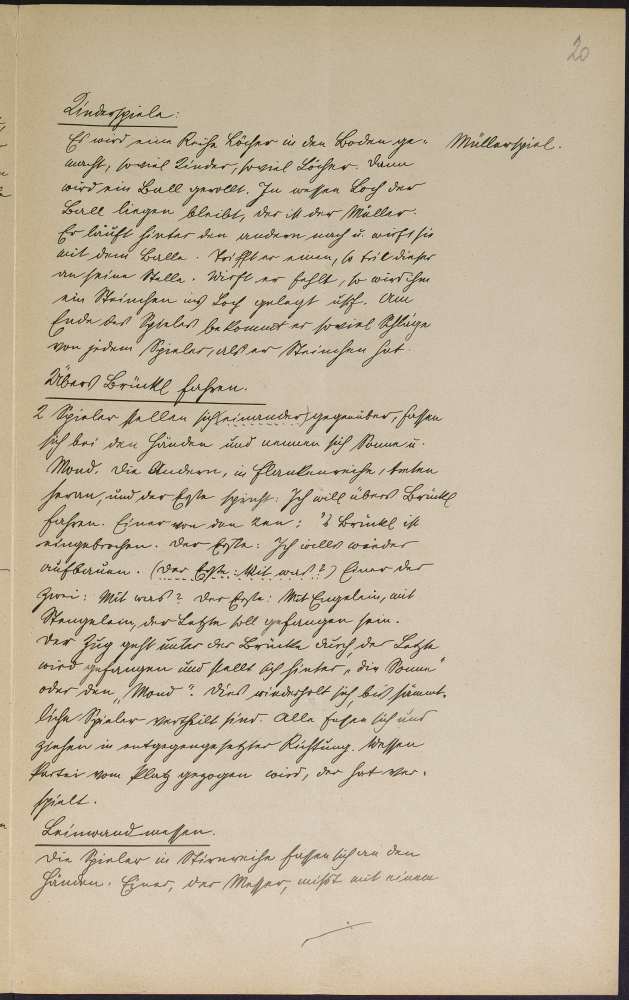 20
Kinderspiele:
Es wird eine Reihe Löcher in den Boden ge- Müllerspiel.
macht, soviel Kinder, soviel Löcher. Dann
wird ein Ball gerollt. In wessen Loch der
Ball liegen bleibt, der ist der Müller.
Er läuft hinter den andern nach u. wirft sie
mit dem Balle. Trifft er einen, so tritt dieser
an seine Stelle. Wirft er fehlt, so wird ihm
ein Steinchen ins Loch gelegt usf. Am
Ende des Spieles bekommt er soviel Schläge
von jedem Spieler, als er Steinchen hat.
Übers Brückl fahren.
2 Spieler stellen sich (einander) gegenüber, fassen
sich bei den Händen und nennen sich Sonne u.
Mond. Die Andern, in Flankenreihe, treten
heran, und der Erste spricht: Ich will übers Brückl
fahren. Einer von den 2en: 's Brückl ist
eingebrochen. Der Erste: Ich wills wieder
aufbauen. (Der Erste: Mit was?) Einer der
Zwei: Mit was? Der Erste: Mit Engelein, mit
Stengelein, der Letzte soll gefangen sein.
Der Zug geht unter der Brücke durch, der Letzte
wird gefangen und stellt sich hinter „die Sonne"
oder den „Mond". Dies wiederholt sich, bis sämmt-
liche Spieler vertheilt sind. Alle fassen sich und
ziehen in entgegengesetzter Richtung. Wessen
Partei vom Platz gezogen wird, der hat ver-
spielt.
Leinwand messen.
Die Spieler in Stirnreihe fassen sich an den
Händen. Einer, der Messer, mißt mit einem